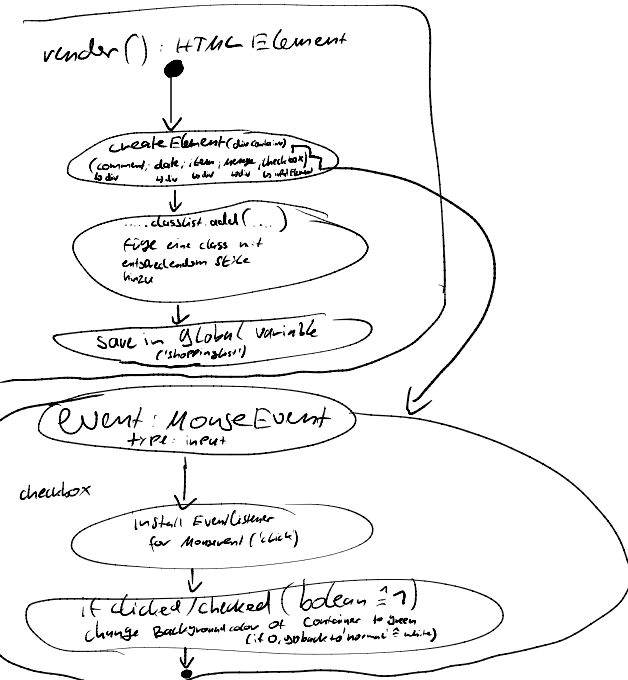 render() : HTML Element
createElement(divcontainer)
(comment, date, item, menge, checkbox)
↳div ↳div ↳div ↳div ↳ inputElement
.....classList.add(....)
Füge eine class mit
entsprechendem Style
hinzu
save in global variable
('shoppinglist')
event : MouseEvent
type: input
checkbox
install EventListener
for Mouseevent ('click')
if clicked/checked (bolean ≙ 1)
change Backgroundcolor of Container to green
(if 0, go back to 'normal' ≙ white)